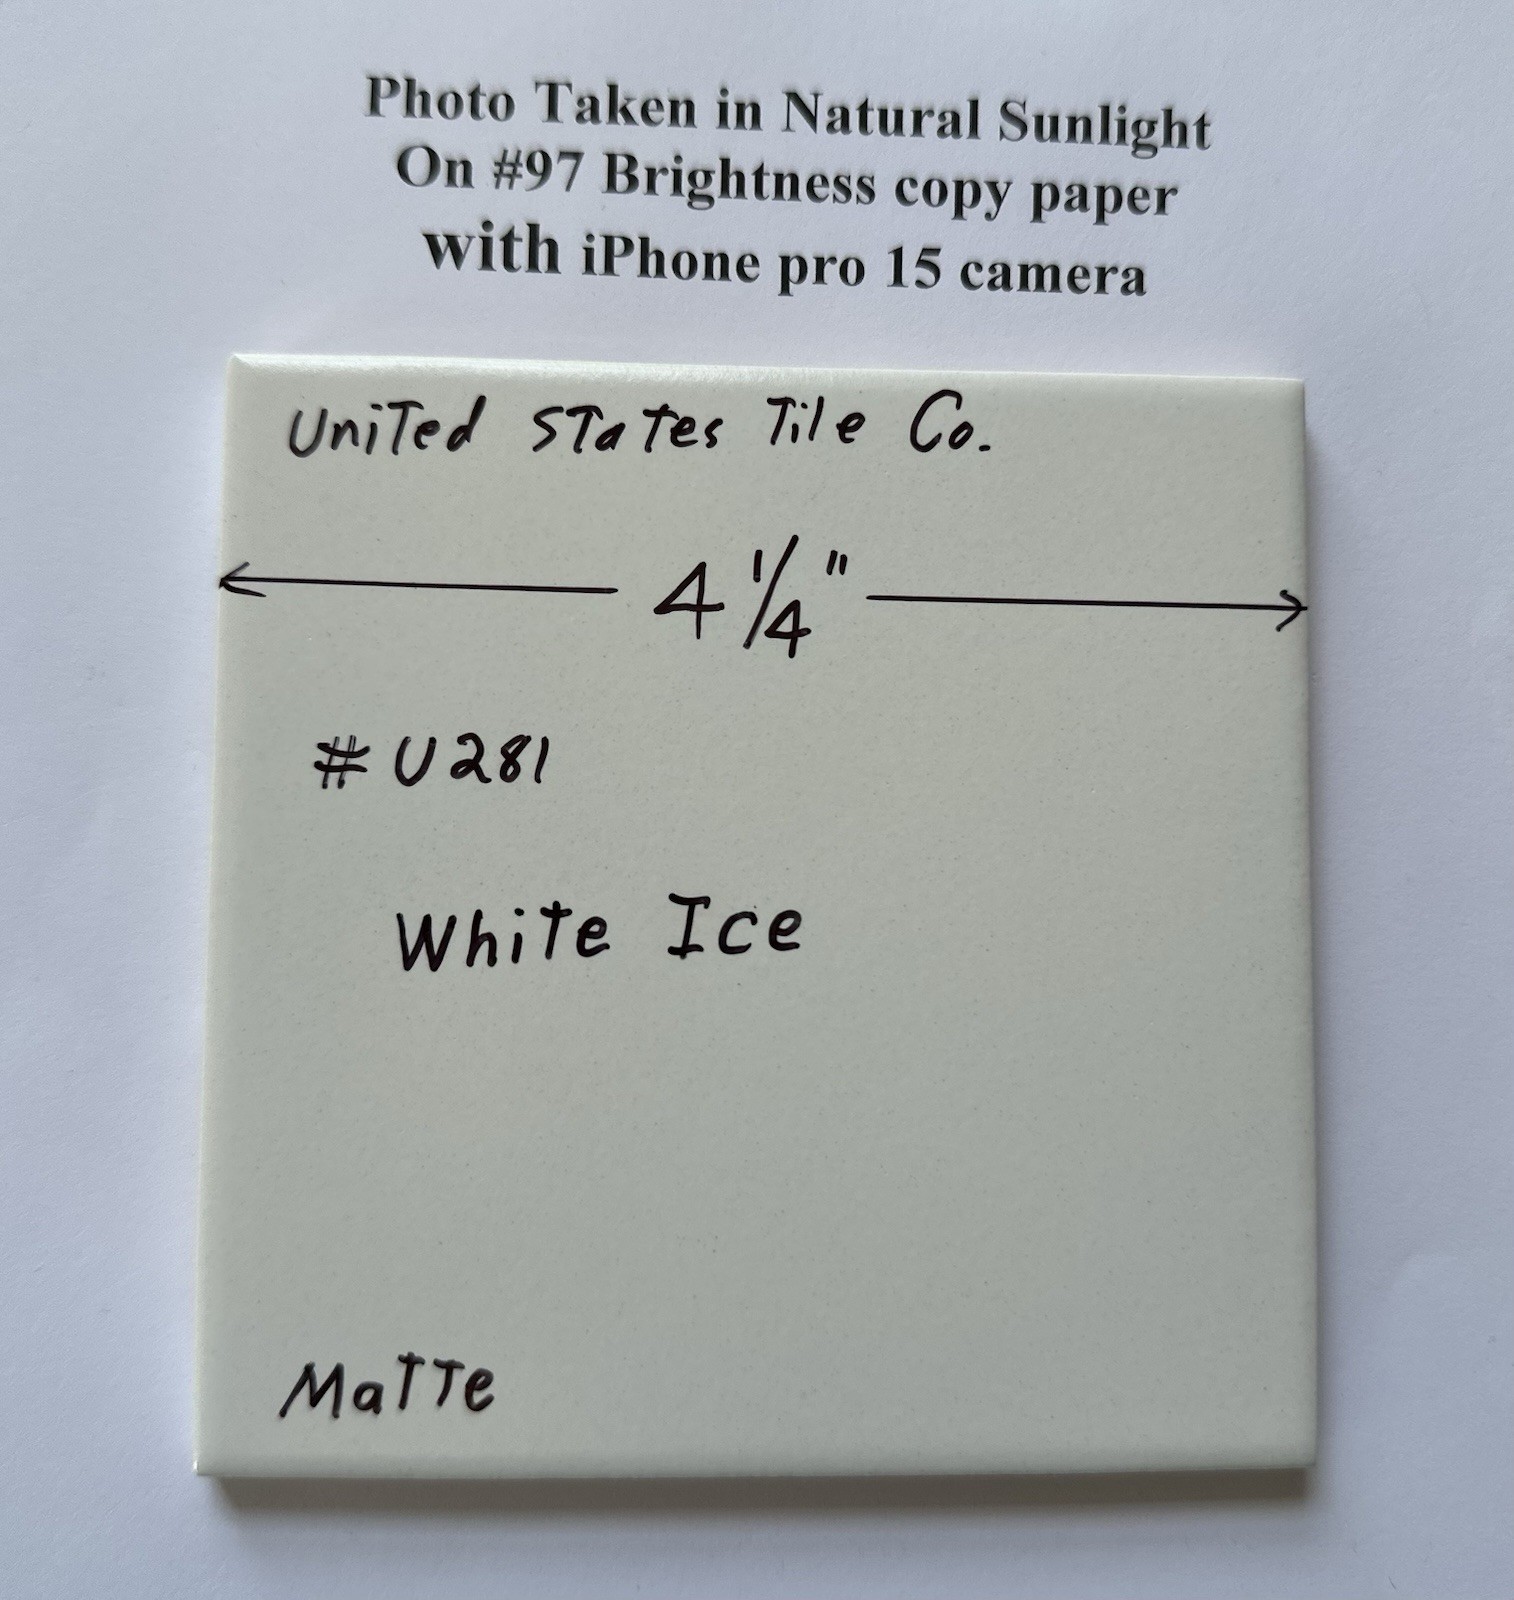 Photo Taken in Natural Sunlight
On #97 Brightness copy paper
with iPhone pro 15 camera
United States Tile Co.
4 1/4"
# U281
White Ice
Matte